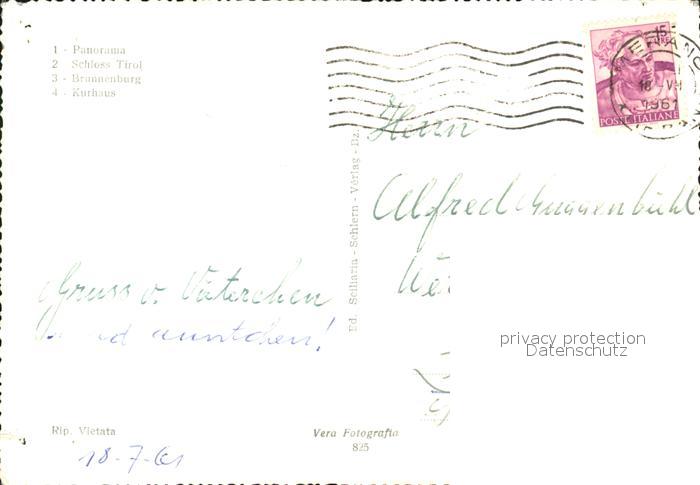 1 - Panorama
2 Schloss Tirol
3 - Brannenburg
4 - Kurhaus
15
MERANO
18-VII
1961
POSTE ITALIANE
Herrn
Alfred Guggenbühl
Ed. Sciliaria - Schlern - Verlag - Bz.
Gruss v. Väterchen
privacy protection
Datenschutz
Rip. Vietata
Vera Fotografia
825
18-7-61